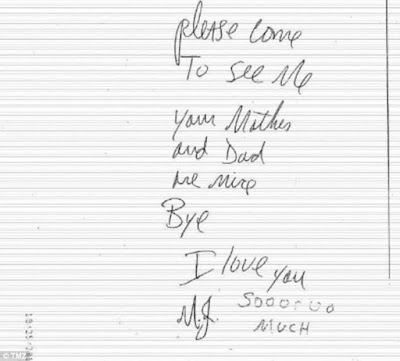 please come
To See Me
your Mother
and Dad
are nice
Bye
I love you
M.J. Soooooo
MUCH
© TMZ